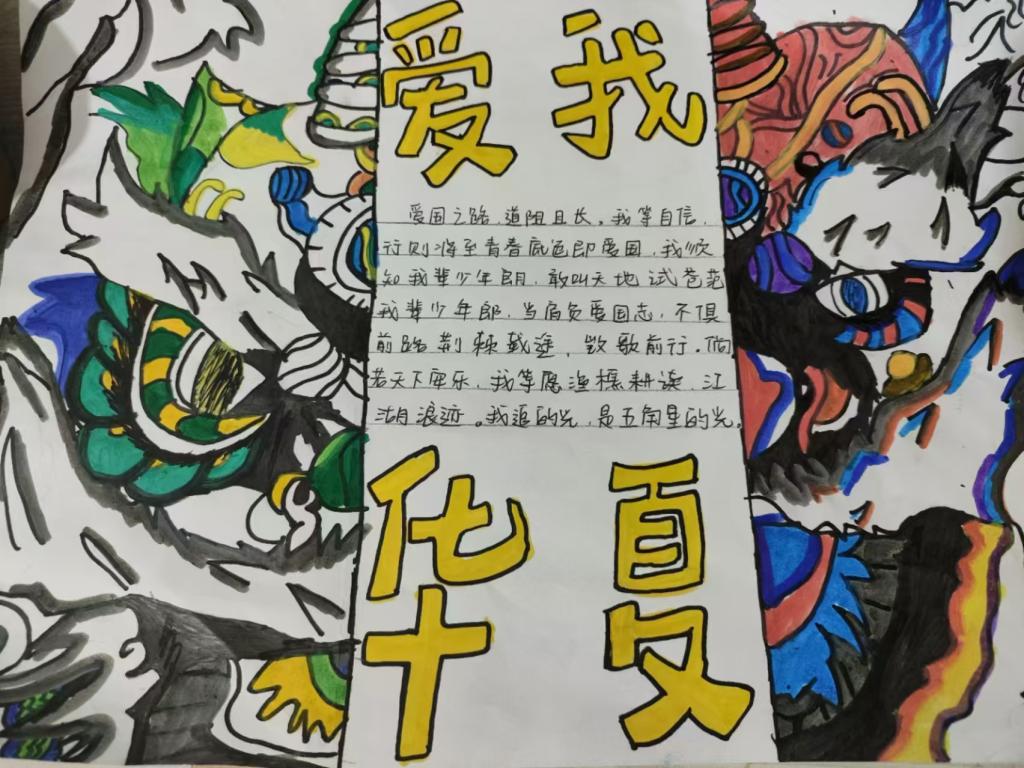 爱我
爱国之路,道阻且长。我等自信,
行则将至青春底色即爱国,我须
知我辈少年朗,敢叫天地试苍茫
我辈少年郎,当肩负爱国志,不惧
前路荆棘载途,歌前行。倘
若天下安乐,我等愿渔樵耕读,江
湖浪迹。我追的光,是五角星的光。
华夏